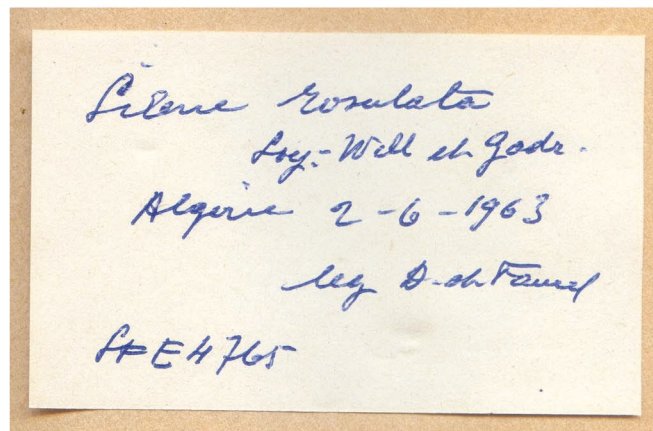 Silene rosulata
Soy.-Will et Godr.
Algérie 2-6-1963
leg D. et Faurel
SPE4765